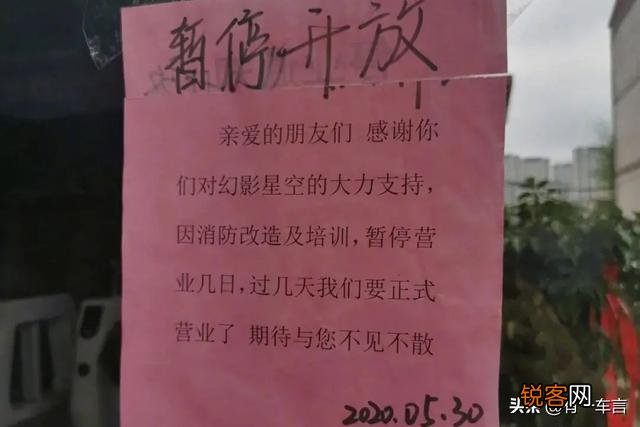 暂停开放
亲爱的朋友们 感谢你
们对幻影星空的大力支持，
因消防改造及培训，暂停营
业几日，过几天我们要正式
营业了 期待与您不见不散
2020.05.30
头条 @肯一车言
锐客网